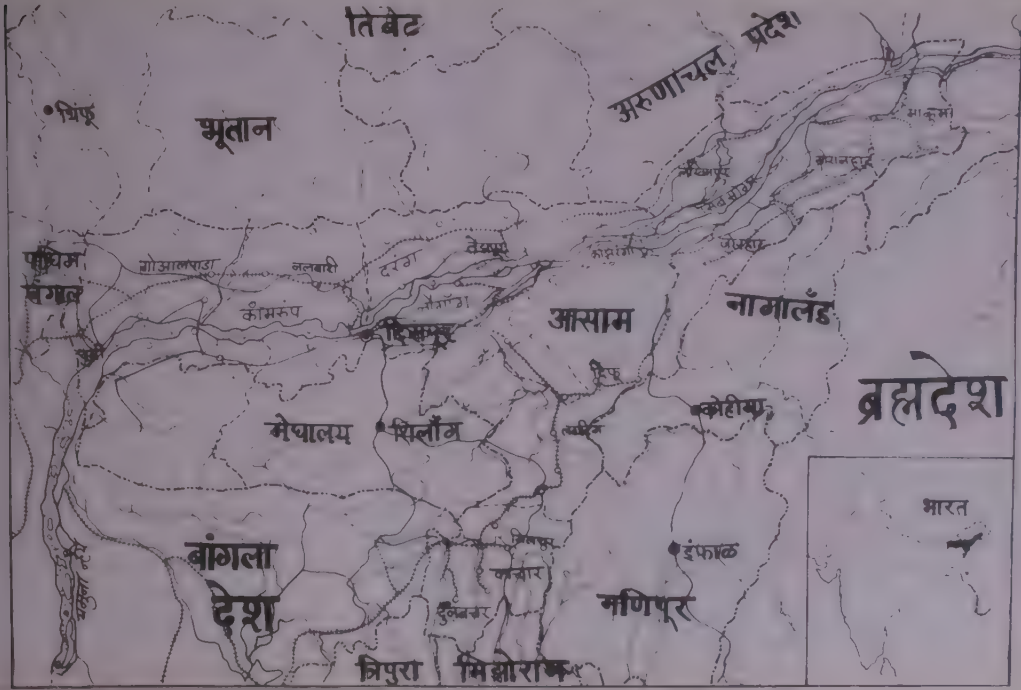 तिबेट
अरुणाचल प्रदेश
थिंफू
भूतान
माकुमा
पश्चिम
बंगाल
गोआलपाडा
नलबारी
दरंग
तेजपूर
जोरहाट
कामरूप
नौगाँग
दिसपूर
आसाम
नागालँड
ब्रह्मदेश
मेघालय
शिलाँग
कोहीमा
भारत
बांगला
देश
काचार
इंफाळ
मणिपूर
त्रिपुरा
मिझोराम